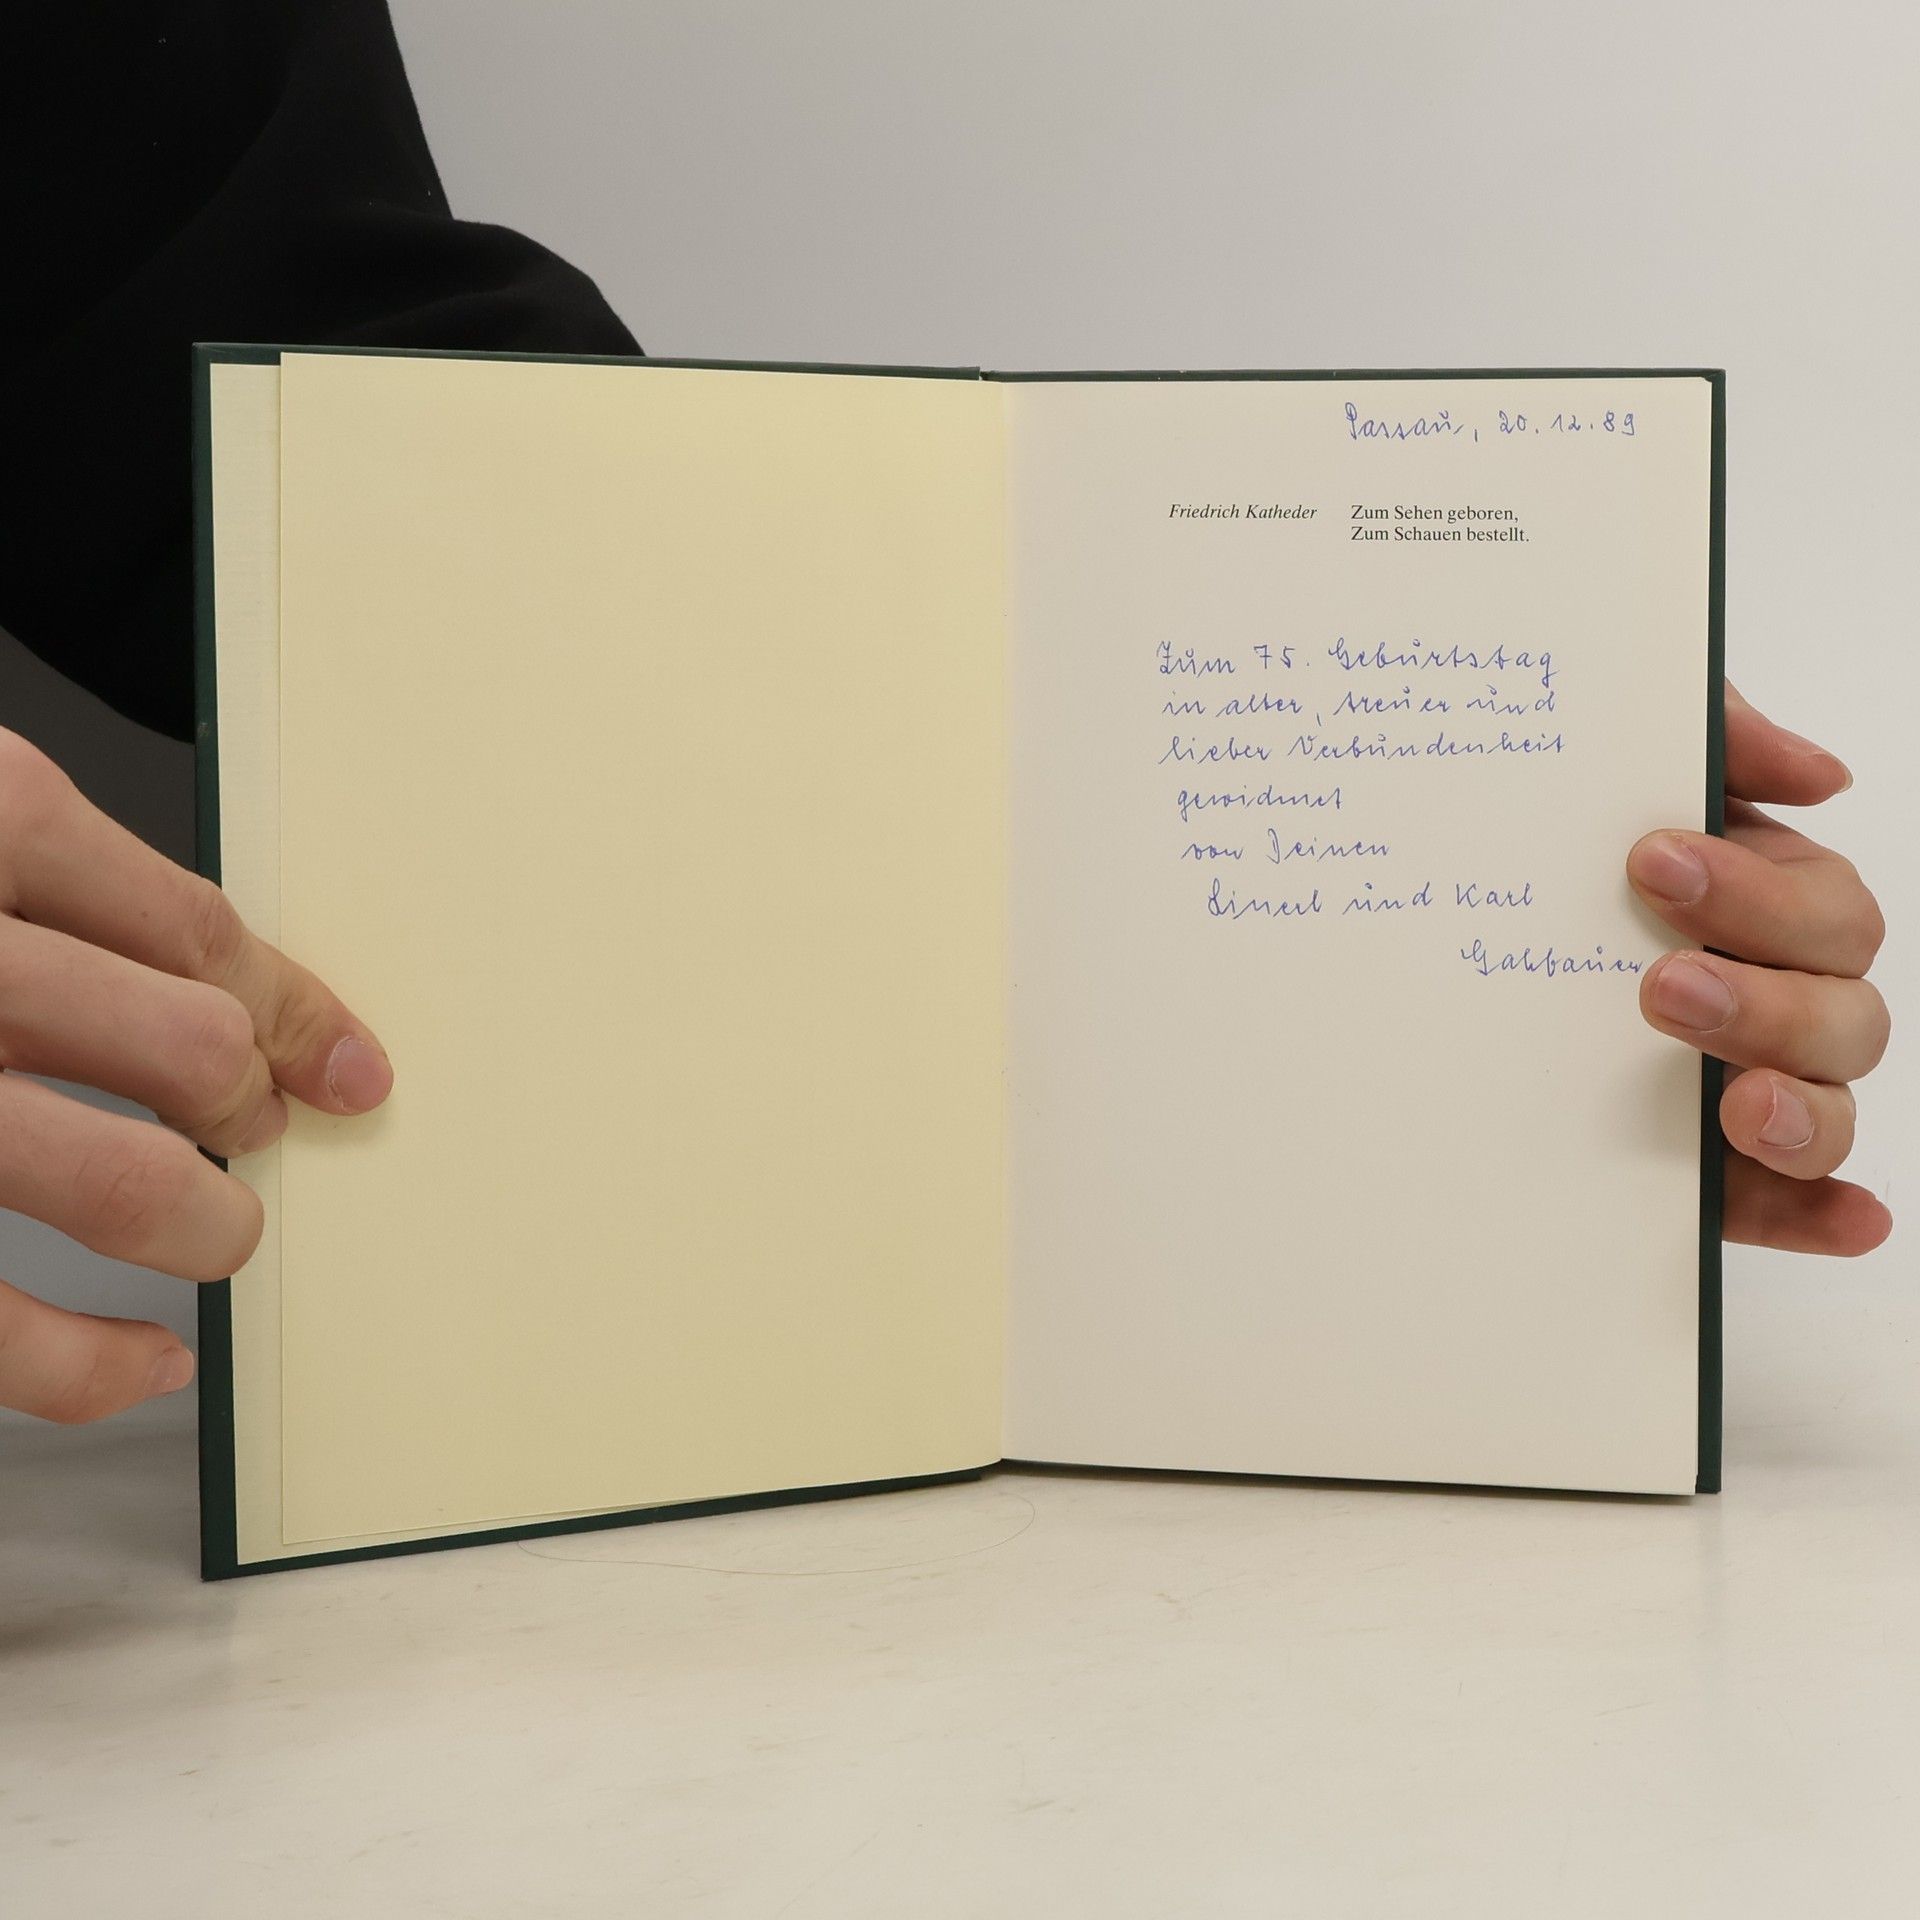 Passau, 20.12.89
Friedrich Katheder Zum Sehen geboren,
Zum Schauen bestellt.
Zum 75. Geburtstag
in alter, treuer und
lieber Verbundenheit
gewidmet
von Deinen
Linerl und Karl
Gahbauer